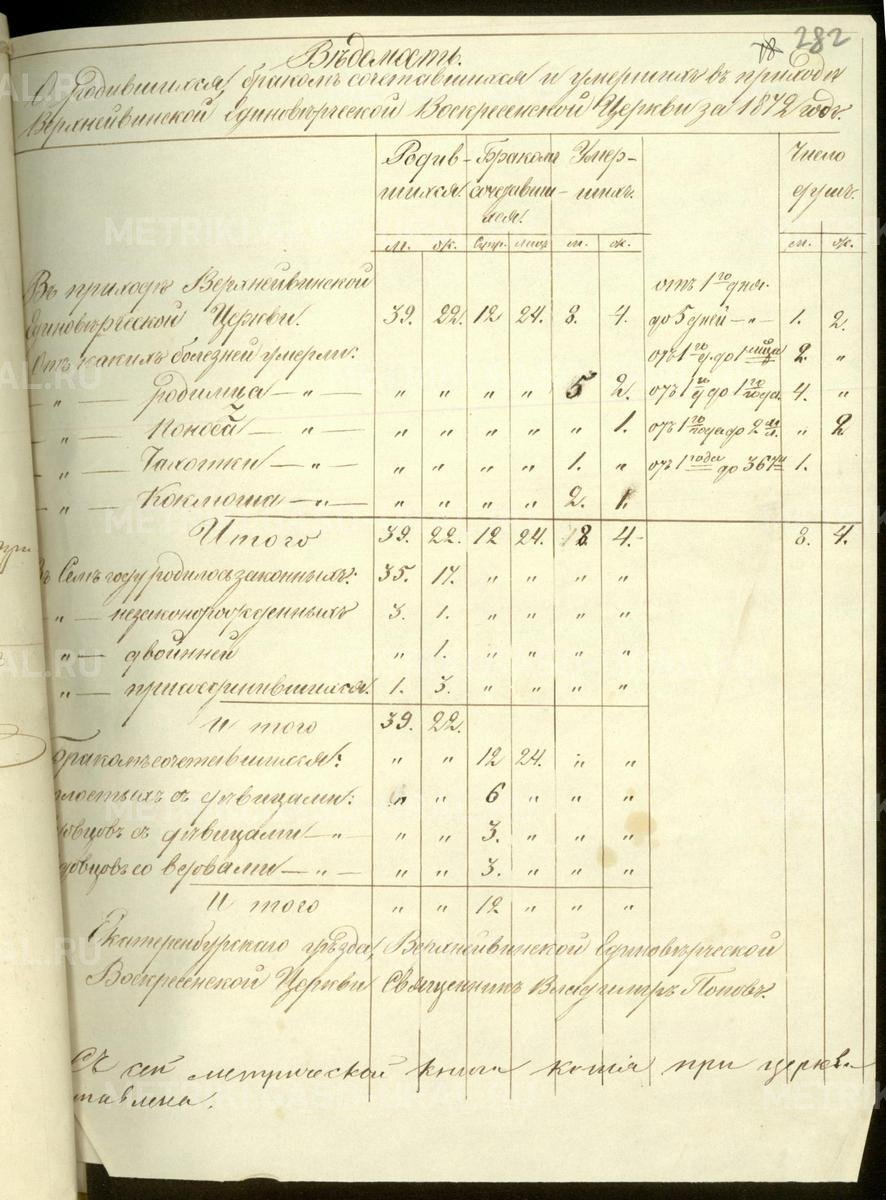 282
Вѣдомость.
О родившихся, бракомъ сочетавшихся и умершихъ въ приходѣ
Верхнейвинской Единовѣрческой Воскресенской Церкви за 1872 годъ.
Родив- Бракомъ Умер- Число
шихся. сочетавши- шихъ. душъ.
хся.
м. ж. Супр. лицъ м. ж. м. ж.
Въ приходѣ Верхнейвинской отъ 1го дня.
Единовѣрческой Церкви. 39. 22. 12 24. 8. 4. до 5 дней — „ — 1. 2.
Отъ какихъ болезней умерли: 2. „
— „ — родимца — „ — „ „ „ „ 5 2. 4. „
— „ — Поноса — „ — „ „ „ „ „ 1. „ 2
— „ — Чахотки — „ — „ „ „ „ 1. „ отъ 1 года до 36ти 1.
— „ — Коклюша — „ — „ „ „ „ 2. 1.
Итого 39. 22. 12 24. 8. 4. 8. 4.
Въ Семъ году родилось законныхъ: 35. 17. „ „ „ „
„ — незаконорожденныхъ 3. 1. „ „ „ „
„ — двойнней „ 1. „ „ „ „
„ — присоединившихся. 1. 3. „ „ „ „
Итого 39. 22.
Бракомъ сочетавшихся: „ „ 12 24. „ „
лостыхъ съ дѣвицами: „ „ 6 „ „ „
овцовъ съ дѣвицами — „ — „ „ 3. „ „ „
довцовъ со вдовами — „ — „ „ 3. „ „ „
Итого „ „ 12 „ „ „
Екатеренбургскаго уѣзда, Верхнейвинской Единовѣрческой
Воскресенской Церкви Священникъ Владимиръ Поповъ.
Съ сей метрической книги копія при церкви
тавлена.
METRIKI.SASHAL.RU